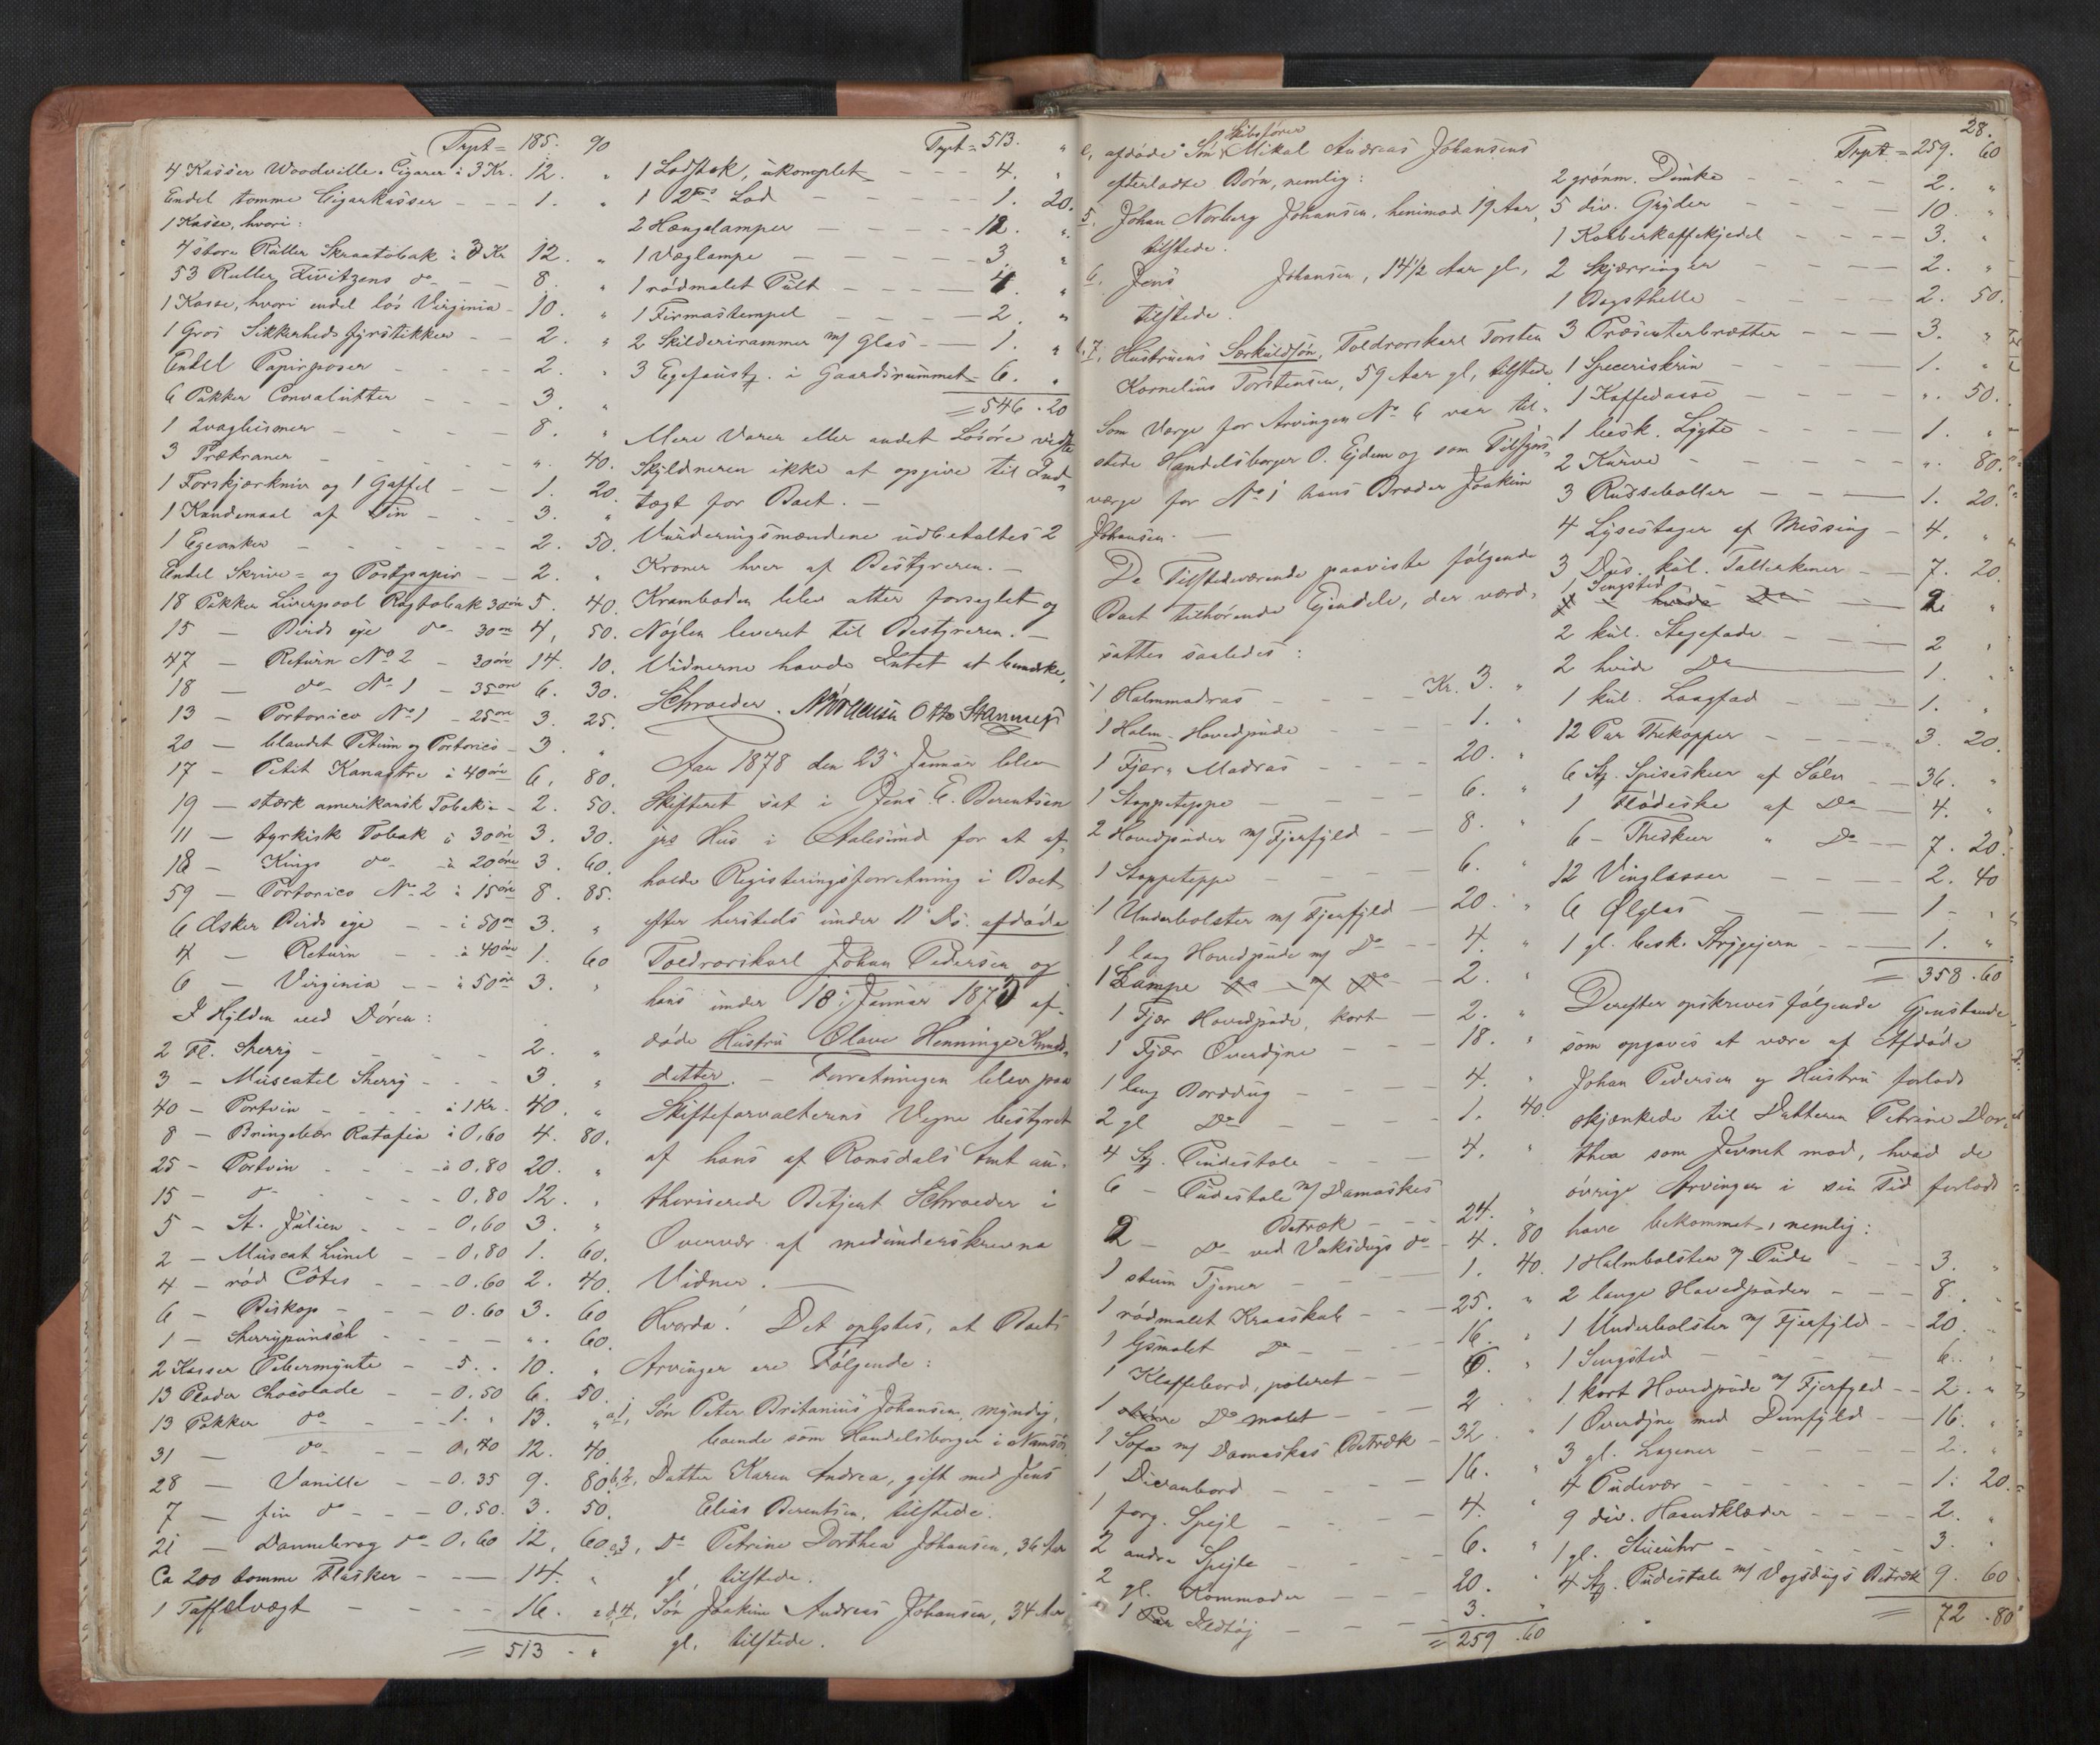 Trpt = 185. 90
4 Kasser Woodville Cigarer à 3 Kr. 12. "
Endel tomme Cigarkasser - - - 1. "
1 Kasse, hvori:
4 store Ruller Skraatobak à 3 Kr 12. "
53 Ruller do - - 8. "
1 Kasse, hvori endel løs Virginia - 10. "
1 Gros Sikkerheds fyrstikker - - 2. "
Endel Papirposer - - - - 2. "
6 Pakker Convolutter - - - 3. "
1 - - - - 8. "
3 Trækraner - - - - - ". 40.
1 Forskjærkniv og 1 Gaffel - - 1. 20.
1 Kandemaal af Tin - - - 3. "
1 Egeanker - - - - - - 2. 50.
Endel Skrive= og Postpapir - - 2. "
18 Pakker Liverpool Røgtobak 30 øre 5. 40.
15 — Birds eye do 30 øre 4. 50.
47 — Return No 2 - 30 øre 14. 10.
18 — do No 1 - 35 øre 6. 30.
13 — Portorico No 1 - 25 øre 3. 25.
20 — blandet Petum og Portorico - 3. "
17 — Petit Kanastre à 40 øre 6. 80.
19 — stærk amerikansk Tobak - - 2. 50.
11 — tyrkisk Tobak à 30 øre 3. 30.
18 — Kings do à 20 øre 3. 60.
59 — Portorico No 2 à 15 øre 8. 85.
6 Æsker Birds eye - - à 50 øre 3. "
4 — Return - - à 40 øre 1. 60
6 — Virginia - - à 50 øre 3. "
I Hylden ved Døren:
2 Fl. Sherry - - - - - 2. "
3 — Muscatel Sherry - - - 3. "
40 — Portvin - - - - à 1 Kr. 40. "
8 — Bringebær Ratafia à 0,60 4. 80.
25 — Portvin - - - - à 0,80 20. "
15 — do - - - - - 0,80 12. "
5 — St. Julien - - - 0,60 3. "
2 — Muscat Lunel - - 0,80 1. 60.
4 — rød Côtes - - - 0.60 2. 40.
6 — Biskop - - - 0.60 3. 60
1 — Sherrypunsch - - - - ". 60.
2 Kasser Pebermynte - - 5. . 10. "
13 Plader Chocolade - - 0,50 6. 50.
13 Pakker do - - - 1. " 13. "
31 — do - - - 0,40 12. 40.
28 — Vanille - - 0.35 9. 80.
7 — fin do - - - 0,50. 3. 50.
21 — Dannebrog do 0,60 12. 60
Ca 200 tomme Flasker - - — 14. "
1 Taffelvægt - - - - - 16. "
= 513 - "
Trpt = 513. "
1 Lodstok, ukomplet - - - 4. "
1 Lod - - - - - - 1. 20.
2 Hængelamper - - - - - 12. "
1 Væglampe - - - - - - 3. "
1 rødmalet Pult - - - - 4. "
1 Firmastempel - - - - - 2. "
2 Skilderirammer m/ Glas - - 1. "
3 i Gaardsrummet - 6. "
= 546 . 20
Mere Varer eller andet Løsøre vidste
Skyldneren ikke at opgive til Ind=
tægt for Boet. —
Vurderingsmændene udbetaltes 2
Kroner hver af Bestyreren. —
Kramboden blev atter forseglet og
Nøglen leveret til Bestyreren. —
Vidnerne havde Intet at bemærke.
Schroeder. Otto
Aar 1878 den 23de Januar blev
Skifteret sat i Jens E. Berentsen
jrs Hus i Aalesund for at af=
holde Registeringsforretning i Boet
efter hersteds under 11 ds. afdøde
Toldrorskarl Johan Pedersen og
hans under 18 Januar 187 af=
døde Hustru Olave Henninge Knuds=
datter. — Forretningen blev paa
Skifteforvalterens Vegne bestyret
af hans af Romsdals Amt au=
thoriserede Betjent Schroeder i
Overvær af medunderskrevne
Vidner. —
Hvorda! Det oplystes, at Boets
Arvinger ere Følgende:
a, 1, Søn Peter Britanius Johansen, myndig,
boende som Handelsborger i Namsos.
b, 2, Datter Karen Andrea, gift med Jens
Elias Berentsen, tilstede.
c, 3, Do Petrine Dorthea Johansen, 36 Aar
gl, tilstede.
d, 4, Søn Joakim Andreas Johansen, 34 Aar
gl, tilstede.
28.
Skibsfører
e, afdøde Søn Mikal Andreas Johansens
efterladte Børn, nemlig:
5. Johan Norberg Johansen, henimod 19 Aar,
tilstede.
6. Jens Johansen, 14 1/2 Aar gl,
tilstede.
f. 7. Hustruens Særkuldsøn, Toldrorskarl Torsten
Kornelius Torstensen, 59 Aar gl, tilstede
Som Værge for Arvingen No 6 var til=
stede Handelsborger O. Ejdem og som Tilsyns=
værge for No 1 hans Broder Joakim
Johansen. —
De Tilstedeværende paaviste følgende
Boet tilhørende Ejendele, der værd=
sattes saaledes:
1 Halmmadras - - - Kr. 3. "
1 Halm-Hovedpude - - - 1. "
1 Fjær Madras - - - - 20. "
1 Stoppeteppe - - - - 6. "
2 Hovedpuder m/ Fjærfyld - - 8. "
1 Stoppeteppe - - - - 6. "
1 Underbolster m/ Fjærfyld - 20. "
1 lang Hovedpude m/ Do - - 4. "
1 Lampe - - 2. "
1 Fjær Hovedpude, kort - - 2. "
1 Fjær Overdyne - - - 18. "
1 lang Borddug - - - - 4. "
2 gl Do - - - - - 1. 40.
4 Stg. Pindestole - - - - 4. "
6 — Pudestole m/ Damaskes
Betræk - - - 24. "
2 — do ved Voksdugs do - 4. 80
1 stum Tjener - - - - 1. 40.
1 rødmalet Kraaskab - - - 25. "
1 malet Do - - - - 16. "
1 Klaffebord, poleret - - - 6. "
1 Do malet - - - 2 "
1 Sofa m/ Damaskes Betræk - 32. "
1 Divanbord - - - - 16. "
1 forg. Spejl - - - - 4. "
2 andre Spejle - - - - 6. "
2 gl. Kommoder - - - 20. "
1 Ildtøj - - - 3. "
= 259 . 60
Trpt. = 259. 60
2 grønm. - - - - 2. "
5 div. Gryder - - - - 10. "
1 Kobberkaffekjedel - - - - 3. "
2 - - - - 2. "
1 Bagsthelle - - - - 2. 50.
3 Præsenterbrætter - - - 3. "
1 Speceriskrin - - - - 1. "
1 Kaffedaase - - - - ". 50.
1 besk. Lygte - - - - 1. "
2 Kurve - - - - - ". 80.
3 Russeboller - - - 1. 20.
4 Lysestager af Messing - 4. "
3 Dus. kul. Tallerkener - - 7. 20.
1 Sengsted - - 2 "
2 kul. Stegefade - - - 2 "
2 hvide Do - 1. "
1 kul. Laagfad - - - 1. "
12 Par Thekopper - - - - 3. 20.
6 Stg. Spiseskeer af Sølv - - 36. "
1 Flødeske af Do - - 4. "
6 — Theskeer " Do - - 7. 20.
12 Vinglasser - - - - 2. 40
6 Ølglas - - - - 1 - "
1 gl. besk. Strygejern - - - 1. "
= 358 . 60
Derefter opskreves følgende Gjenstande
som opgaves at være af Afdøde
Johan Pedersen og Hustru forlods
skjænkede til Datteren Petrine Dor=
thea som Jevnet mod, hvad de
øvrige Arvinger i sin Tid forlods
have bekommet, nemlig:
1 Halmbolster m/ Pude - - - 3. "
2 lange Hovedpuder - - - 8. "
1 Underbolster m/ Fjærfyld - - 20. "
1 Sengsted - - - - 6. "
1 kort Hovedpude m/ Fjerfyld - - 2. "
1 Overdyne med Dunfyld - - 16. "
3 gl. Lagener - - - - 2. "
4 Pudevær - - - - - 1. 20.
9 div. Haandklæder - - - - 2. "
1 gl. Stueuhr - - - - - 3. "
4 Stg. Pudestole m/ Voxdugs Betræk 9. 60
= 72 . 80